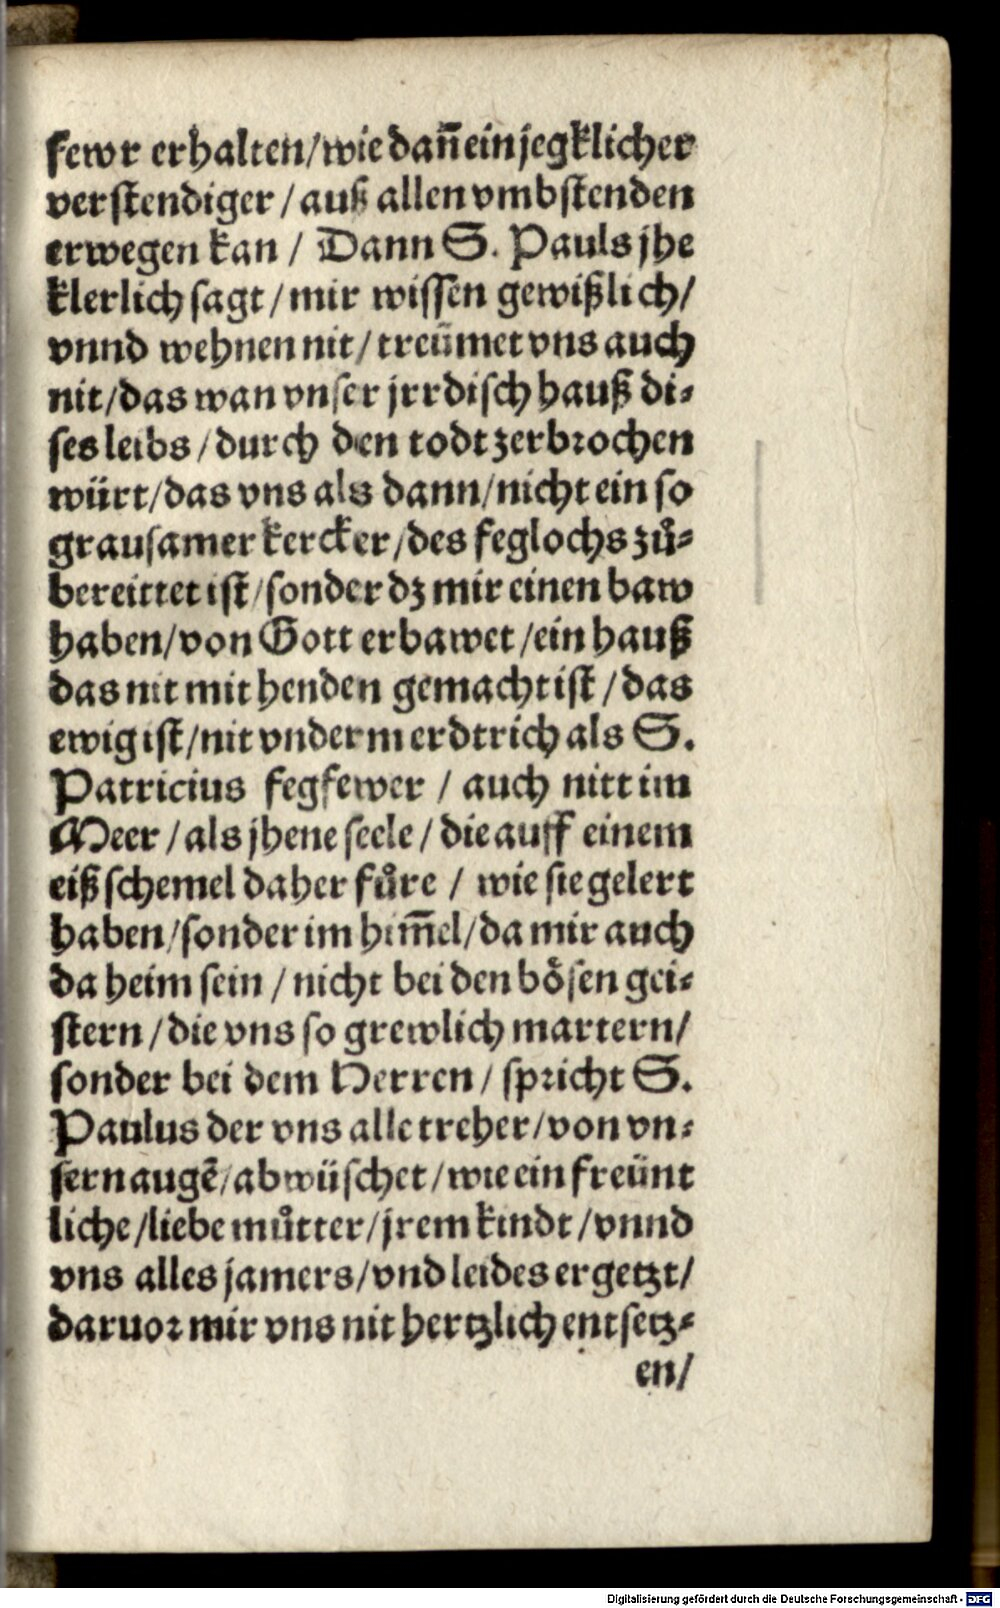 fewr erhalten/wie dañ ein jegklicher
verstendiger / auß allen vmbstenden
erwegen kan / Dann S. Pauls jhe
klerlich sagt / mir wissen gewißlich/
vnnd wehnen nit / treümet vns auch
nit/das wan vnser jrrdisch hauß di⸗
ses leibs / durch den todt zerbrochen
würt/das vns als dann/nicht ein so
grausamer kercker/des feglochs zů⸗
bereittet ist/sonder dz mir einen baw
haben/von Gott erbawet /ein hauß
das nit mit henden gemacht ist / das
ewig ist/nit vnderm erdtrich als S.
Patricius fegfewer / auch nitt im
Meer / als jhene seele / die auff einem
eiß schemel daher fůre / wie sie gelert
haben/sonder im him̃el/da mir auch
da heim sein / nicht bei den bösen gei⸗
stern / die vns so grewlich martern/
sonder bei dem Herren / spricht S.
Paulus der vns alle treher/von vn⸗
sern augẽ/abwüschet/wie ein freünt
liche/liebe můtter/jrem kindt/vnnd
vns alles jamers/vnd leides ergetzt/
daruor mir vns nit hertzlich entsetz⸗
en/
Digitalisierung gefördert durch die Deutsche Forschungsgemeinschaft - DFG